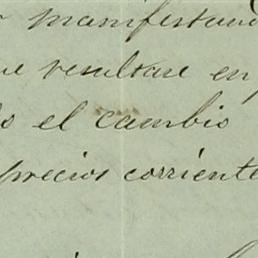 manifestand
resultase en
el cambio
precios corriente